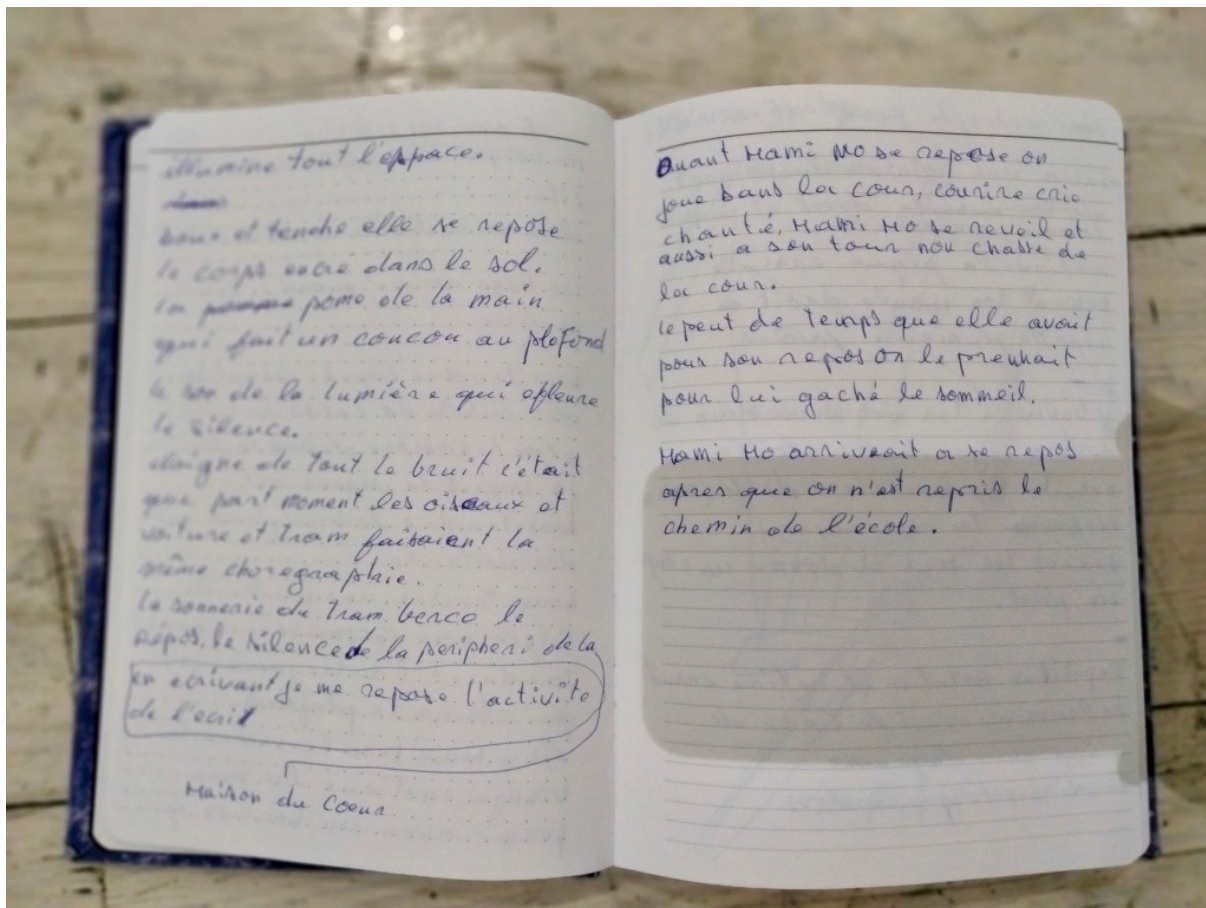 illumine tout l'espace.
et tenche elle se repose
le corps encre dans le sol.
la pome de la main
qui fait un concon au plofond
le son de la lumière qui efleure
le silence.
eloigne de tout le bruit c'était
que part moment les oiseaux et
voiture et Tram faisaient la
même choregraphie.
la sonnerie du Tram berce le
repos. le silence de la peripheri de la
en ecrivant je me repose l'activite
de l'ecrit
Maison du Coeur
Quant Mami Mo se repose on
joue dans la cour, courire crie
chanté, Mami Mo se reveil et
aussi a son tour nou chasse de
la cour.
le peut de Temps que elle avait
pour son repos on le prenhait
pour lui gaché le sommeil.
Mami Mo arriveait a se repos
apres que on n'est repris le
chemin de l'école.